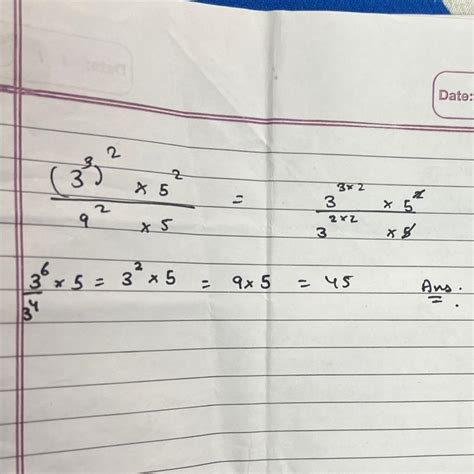 Date:
(3³)² × 5² / 9² × 5 = 3^(3×2) × 5² / 3^(2×2) × 5
3⁶/3⁴ × 5 = 3² × 5 = 9 × 5 = 45 Ans.